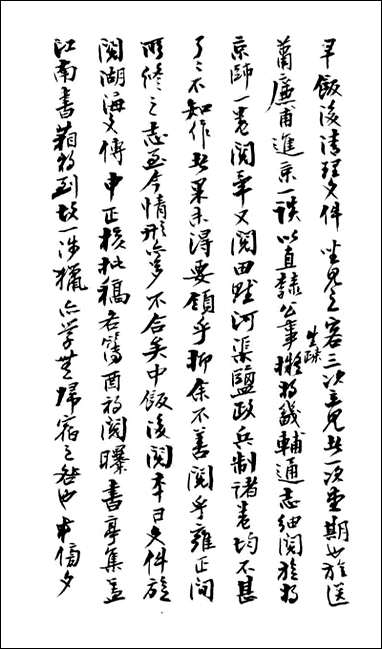 早飯後清理文件坐見之客三次立見者一次堂期也旋送
蕭廉甫進京一談以直隸公事生疎擬將畿輔通志細閱旋將
京師一卷閱畢又閱田賦河渠鹽政兵制諸卷均不甚
了々不知作者果未得要領乎抑余不善閱乎雍正間
所修之志至今情形亦多不合矣中飯後閱本日文件旋
閱湖海文傳申正核批稿各簿酉初閱曝書亭集蓋
江南書箱初到故一涉獵亦學無歸宿之咎也傍夕